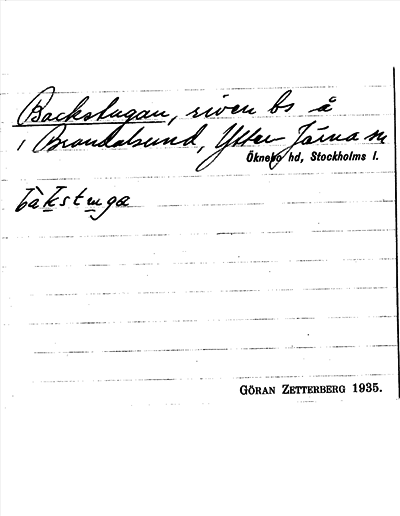 Backstugan, riven bs å
i Brandalsund, Ytter Järna sn
Öknebo hd, Stockholms l.
bàkstuga
GÖRAN ZETTERBERG 1935.